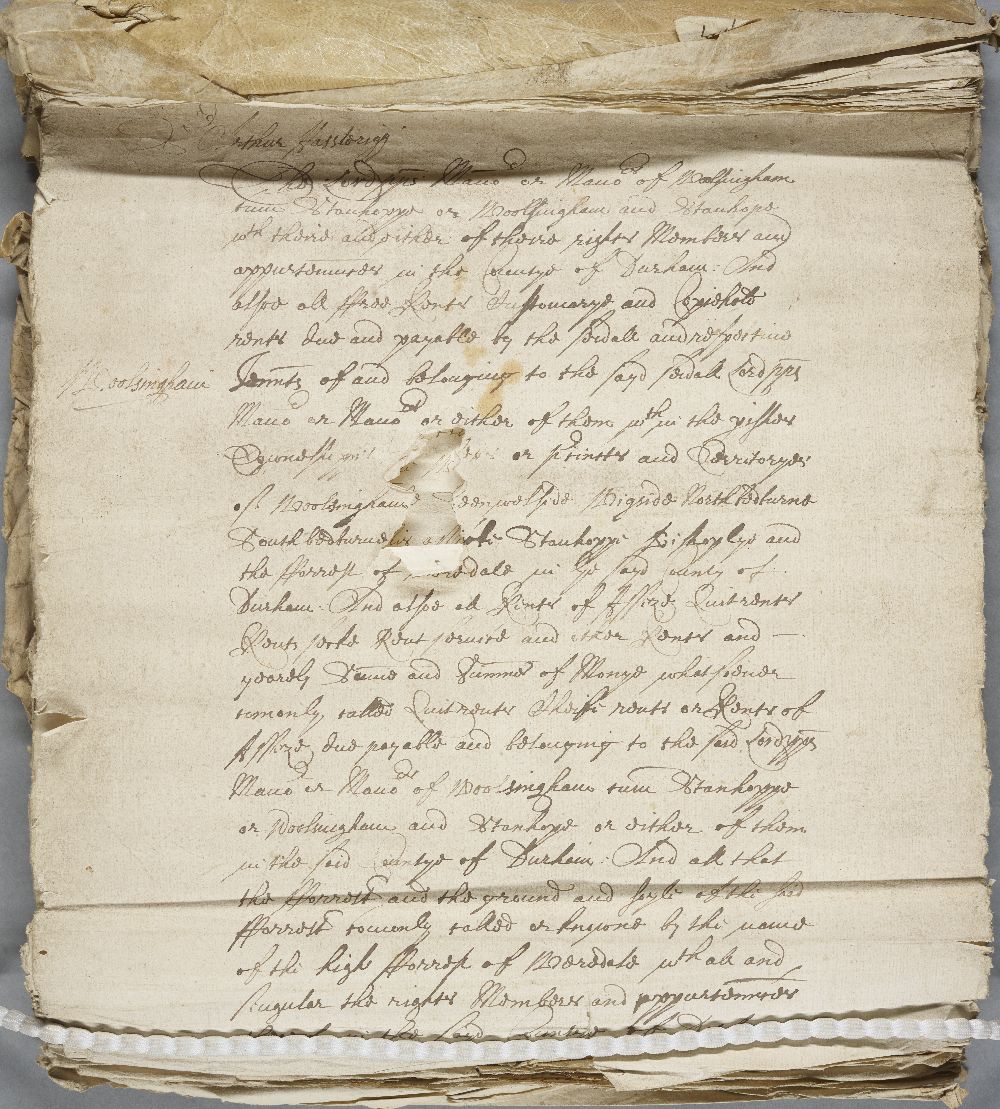 Sr Arthur Hassterigg
The Lordpps Mano:r or Mano:rs of Wolsingham
cum Stanhoppe or Woolsingham and Stanhope
wth theire and either of theire rights Members and
appurtennces in the Countye of Durham: And
alsoe all ffree Rents Customarye and Copiehold
rents due and payable by the sevall and respective
Woolsingham
Tennts of and belonging to the sayd sevall Lordpps
Mano:r or Mano:rs or either of them wthin the pishes
Towneshipps or pcincts and Territoryes
of Woolsinghame Greenwelside Wigside North bedburne
South bedburne Stanhoppe Bishoplye and
the fforrest of Weredale in ye sayd County of
Durham: And alsoe all Rents of Assize Quitrents
Rents secke Rent service and other Rents and
yearely Sume and Summes of Monye whatsoever
comonly called Quitrents Cheife rents or Rents of
Assize due payable and belonging to the said Lordpps
Mano:r or Mano:rs of Woolsingham cum Stanhoppe
or Woolsingham and Stanhope or either of them
in the said Countye of Durham: And all that
the fforrest and the ground and soyle of the said
fforrest comonly called or knowne by the name
of the high fforrest of Weredale wth all and
singular the rights Members and appurtennces
in the sayd Countie of